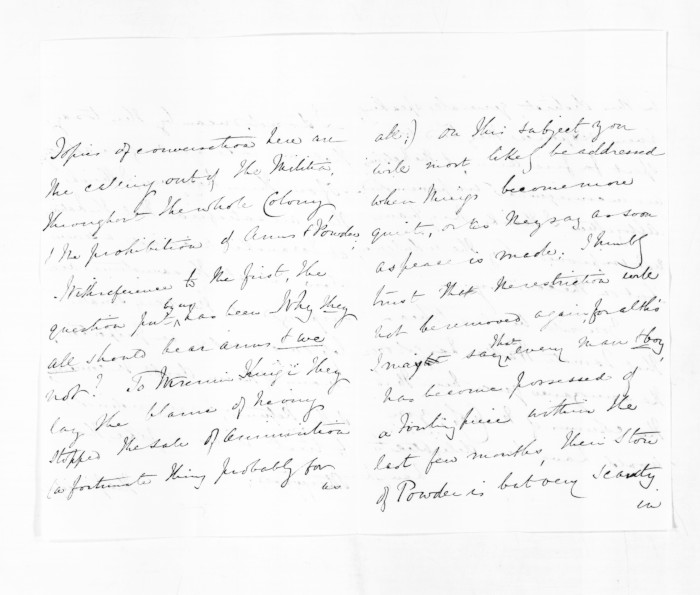 Topics of conversation here are
the calling out of the Militia,
throughout the whole Colony
& the prohibition of Arms & Powder.
With reference to the first, the
question put by us has been Why they
all should bear arms & we
not? To Wiremu Kingi they
lay the blame of having
stopped the sale of ammunition
(a fortunate thing probably for
us
all;) on this subject you
will most likely be addressed
when things become more
quiet, or as they say as soon
as peace is made. I humbly
trust that the restriction will
not be removed again, for altho
I might say that every man & boy
has become possessed of
a fowling piece within the
last few months, their store
of Powder is but very scanty
in